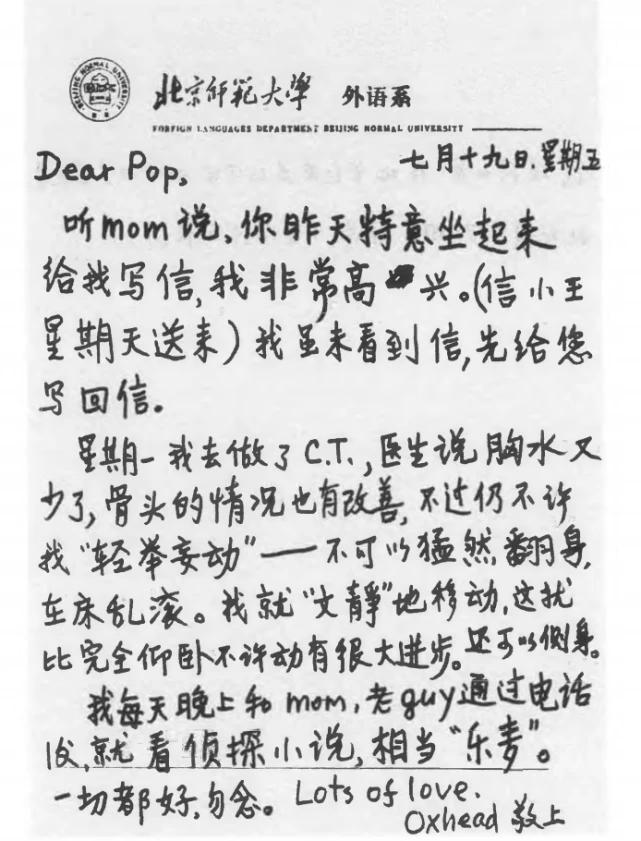 BEIJING NORMAL UNIVERSITY
北京师范大学 外语系
FOREIGN LANGUAGES DEPARTMENT BEIJING NORMAL UNIVERSITY
七月十九日.星期五
Dear Pop,
听mom说,你昨天特意坐起来
给我写信,我非常高兴。(信小王
星期天送来)我虽未看到信,先给您
写回信。
星期一我去做了C.T.,医生说胸水又
少了,骨头的情况也有改善,不过仍不许
我“轻举妄动”——不可以猛然翻身,
在床乱滚。我就“文静”地移动,这就
比完全仰卧不许动有很大进步。还可以侧身。
我每天晚上和mom,老guy通过电话
后,就看侦探小说,相当“乐考”。
一切都好,勿念。Lots of love.
Oxhead 敬上